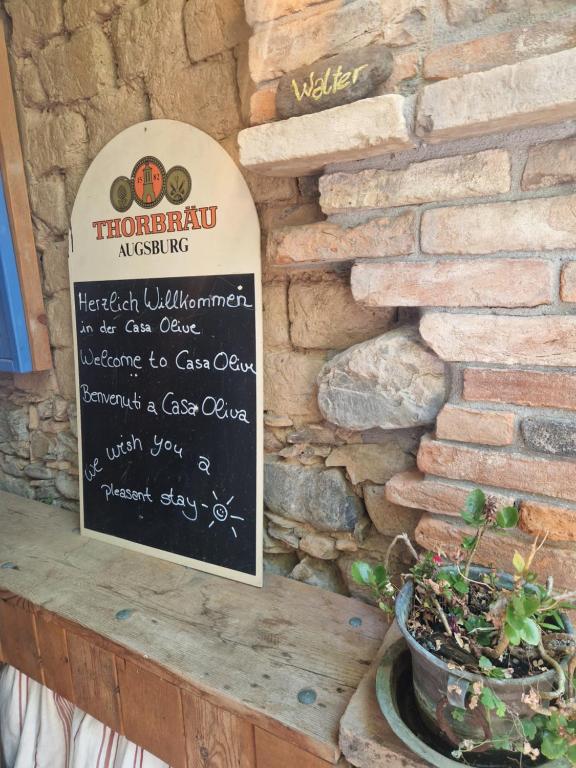 Walter
15 82
THORBRÄU
AUGSBURG
Herzlich Willkommen
in der Casa Olive
Welcome to Casa Olive
Benvenuti a Casa Oliva
we wish you a
pleasant stay